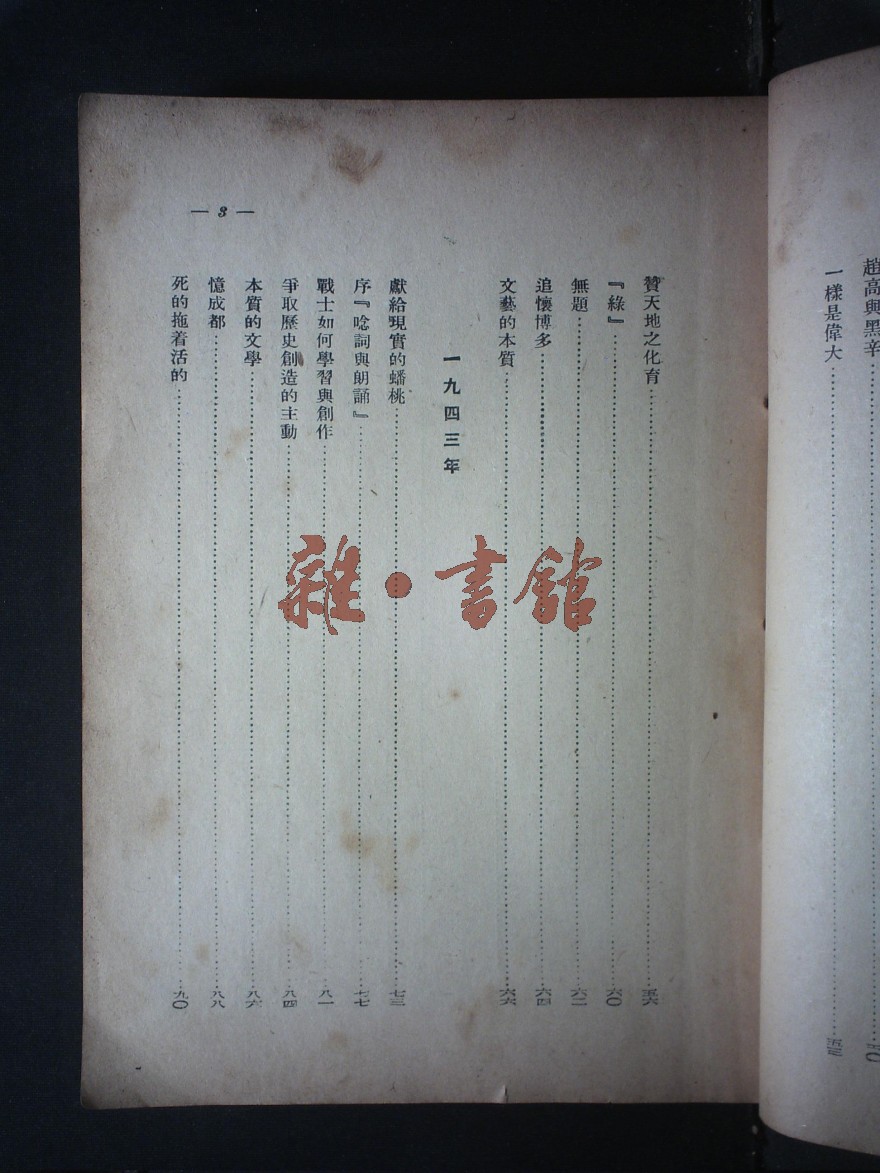 趙高與黑辛
一樣是偉大……五三
— 3 —
贊天地之化育……五六
『綠』……六〇
無題……六二
追懷博多……六四
文藝的本質……六六
一九四三年
獻給現實的蟠桃……七三
序『唸詞與朗誦』……七七
戰士如何學習與創作……八一
爭取歷史創造的主動……八四
本質的文學……八六
憶成都……八八
死的拖着活的……九〇
雜·書館